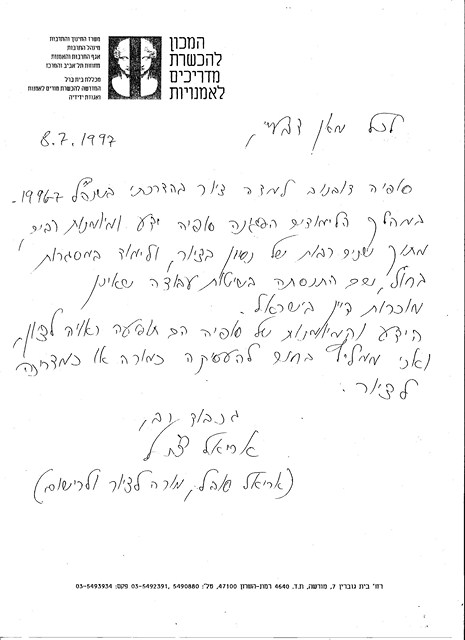 משרד החינוך והתרבות
מינהל התרבות
אגף התרבות והאמנות
מחוזות תל אביב והמרכז
מכללת בית ברל
המדרשה להכשרת מורים לאמנות
ואגודת ידידיה
המכון
להכשרת
מדריכים
לאמנויות
8.7.1997
לכל מאן דבעי,
סופיה דובנוב למדה ציור בהדרכתי בשנה"ל 1996-7.
במהלך הלימודים הפגינה סופיה ידע ומיומנות רבים,
מתוך שנים רבות של נסיון בציור, ולימוד במסגרות
בחו"ל, שם התנסתה בשיטות עבודה שאינן
מוכרות כיון בישראל.
הידע והמיומנות של סופיה הם תופעה ראויה לציון,
ואני ממליץ בחום להעסיקה כמורה או כמדריכה
לציור.
בכבוד רב,
אריאל
(אריאל מורה לציור ולרישום)
רח' בית גוברין 7, מורשה, ת.ד. 4640 רמת-השרון 47100, טל': 5490880, 03-5492391 פקס: 03-5493934